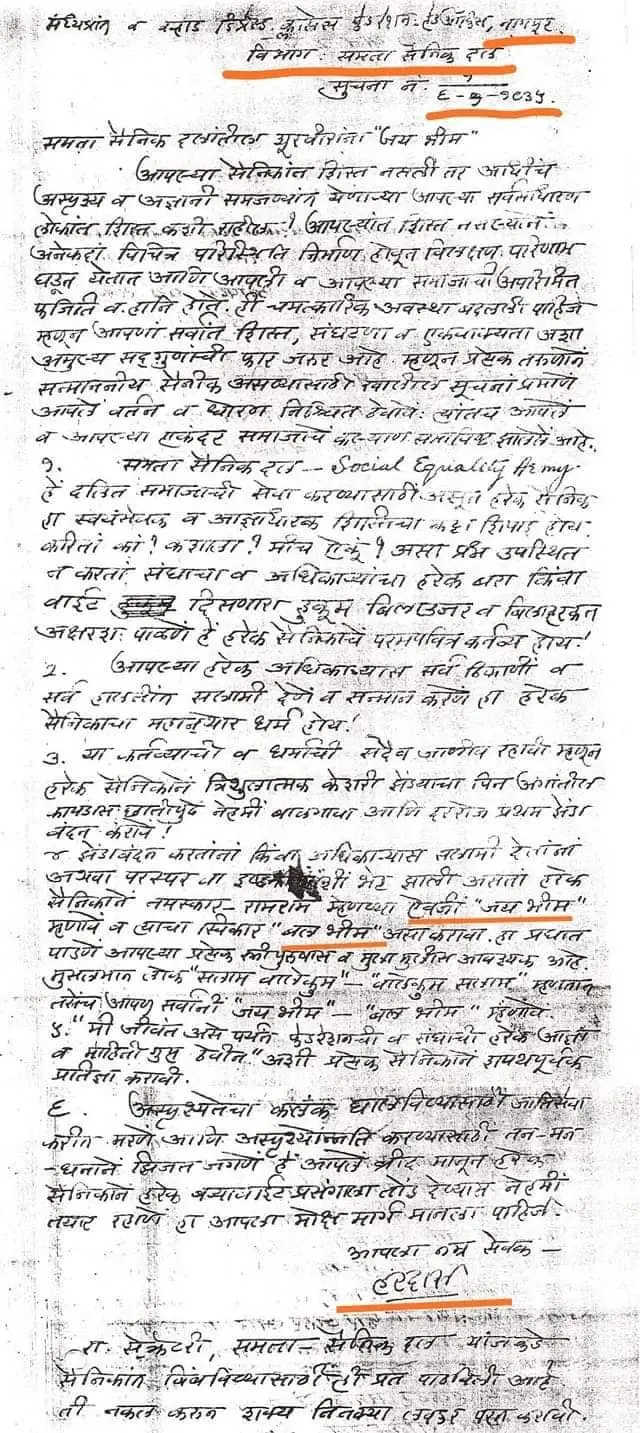 मध्यप्रांत व वऱ्हाड डिप्रेस्ड क्लासेस फेडरेशन. हेडऑफिस, नागपूर.
विभाग: समता सैनिक दल
सुचना नं. १
६-७-१९३५.
समता सैनिक दलांतील शूरवीरांना "जय भीम"
आपल्या सैनिकांत शिस्त नसली तर आधीच
अस्पृश्य व अज्ञानी समजण्यांत येणाऱ्या आपल्या सर्वसाधारण
लोकांत शिस्त कशी राहील? आपल्यांत शिस्त नसल्यानें
अनेकदां विचित्र परिस्थिति निर्माण होवून विलक्षण परिणाम
घडून येतात आणि आपली व आपल्या समाजाची अपरिमित
फजिति व हानि होते. ही चमत्कारिक अवस्था बदलली पाहिजे
म्हणून आपणां सर्वांत शिस्त, संघटणा व एकवाक्यता अशा
अमुल्य सद्गुणांची फार जरूर आहे. म्हणून प्रत्येक तरूणानें
सन्माननीय सैनीक असण्यासाठीं खालील सूचनां प्रमाणें
आपलें वर्तन व धोरण निश्चित ठेवावें. त्यांतच आपलें
व आपल्या एकंदर समाजाचें कल्याण समाविष्ट झालेलें आहे.
१. समता सैनिक दल -- Social Equality Army
हें दलित समाजाची सेवा करण्यासाठीं असून हरेक सैनिक
हा स्वयंसेवक व आज्ञाधारक शिस्तीचा कट्टा शिपाई होय.
करितां कां? कशाला? मीच ऐकूं? असा प्रश्न उपस्थित
न करतां संघाचा व अधिकाऱ्यांचा हरेक बरा किंवा
वाईट दिसणारा हुकूम बिलाउजर व बिलाहरकत
अक्षरशः पाळणें हें हरेक सैनिकाचें परमपवित्र कर्तव्य होय!
2. आपल्या हरेक अधिकाऱ्यास सर्व ठिकाणीं व
सर्व हालतींत सलामी देणें व सन्मान करणें हा हरेक
सैनिकाचा धर्म होय!
३. या कर्तव्याची व धर्माची सदैव जाणीव रहावी म्हणून
हरेक सैनिकानें त्रिशुलात्मक केशरी झेंड्याचा पिन अंगांतील
कापडास छातीपुढें नेहमीं बाळगावा आणि दररोज प्रथम झेंडा
वंदन करावें!
४ झेंडावंदन करतांनां किंवा अधिकाऱ्यास सलामी देतांनां
अथवा परस्पर वा भेट झाली असतां हरेक
सैनिकानें नमस्कार- रामराम म्हणण्या ऐवजीं "जय भीम"
म्हणावें व त्याचा स्विकार "बल भीम" असा करावा. हा प्रघात
पाळणें आपल्या प्रत्येक स्त्रीपुरुषास व मुला मुलीस आवश्यक आहे.
मुसलमान लोक "सलाम वालेकुम" - "वालेकुम सलाम" म्हणतात
तसेंच आपण सर्वांनीं "जय भीम" - "बल भीम" म्हणावें.
५. "मी जीवंत असे पर्यंत फेडरेशनची व संघाची हरेक आज्ञा
व माहिती गुप्त ठेवीन" अशी प्रत्येक सैनिकानें शपथपूर्वक
प्रतिज्ञा करावी.
६. अस्पृश्यतेचा कलंक घालविण्यासाठीं जातिसेवा
करीत मरणें आणि अस्पृश्योन्नति करण्यासाठीं तन-मन
-धनानें झिजत जगणें हें आपलें ब्रीद मानून हरेक
सैनिकानें हरेक बऱ्यावाईट प्रसंगाला तोंड देण्यास नेहमीं
तयार राहणें हा आपला मोक्ष मार्ग मानला पाहिजे.
आपला नम्र सेवक -
हरदास
रा. सेक्रेटरी, समता- सैनिक दल यांजकडे
सैनिकांत बिंबविण्यासाठीं ही प्रत पाठविली आहे
ती नकल करून शक्य तितक्या लवकर परत करावी.